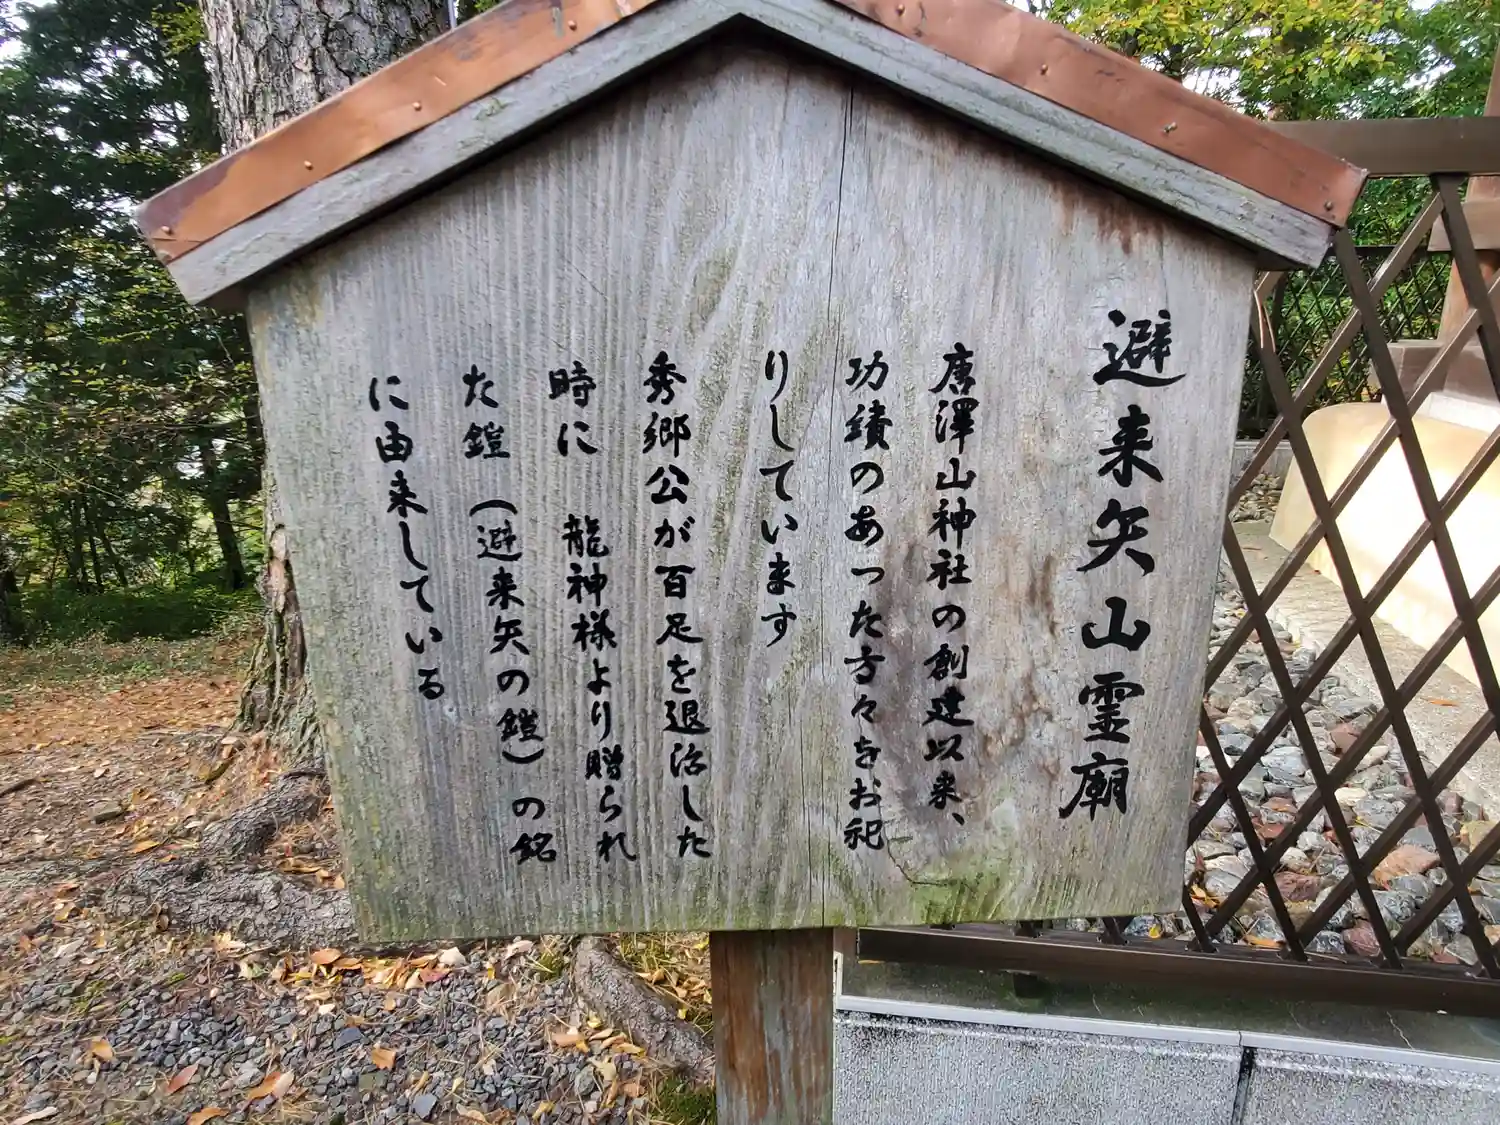 避来矢山霊廟
唐澤山神社の創建以来、
功績のあった方々をお祀
りしています
秀郷公が百足を退治した
時に 龍神様より贈られ
た鎧(避来矢の鎧)の銘
に由来している